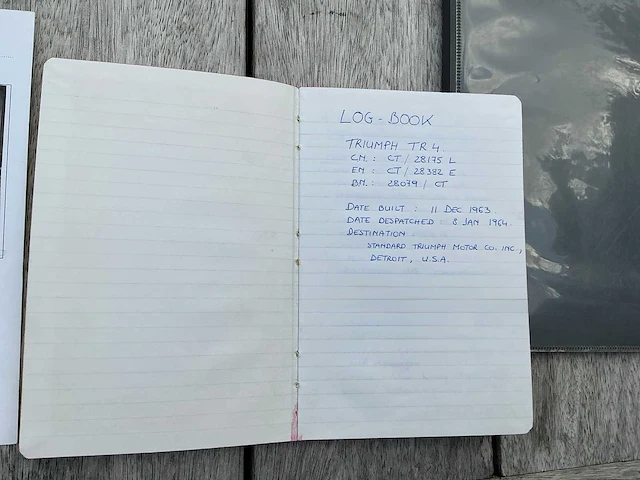 LOG-BOOK
TRIUMPH TR4.
CN.: CT/28175 L
EN.: CT/28382 E
BN.: 28079/CT
DATE BUILT: 11 DEC 1963.
DATE DESPATCHED: 8 JAN 1964.
DESTINATION.
STANDARD TRIUMPH MOTOR CO. INC.,
DETROIT, U.S.A.